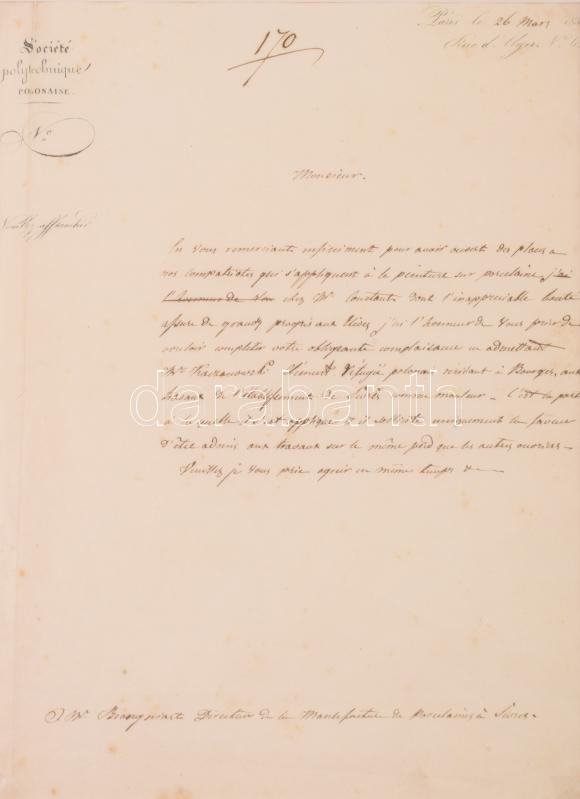 Paris le 26 Mars
170
Société
polytechnique
POLONAISE.
N°
Monsieur.
En vous remerciant infiniment pour avoir ouvert des places a
nos compatriotes qui s'appliquent à la peinture sur porcelaine j'ai
l'honneur de vous chez Mr Constants dont l'inappreciable bonté
assure de grands progrès aux élèves, j'ai l'honneur de vous prier de
vouloir completer votre obligeante complaisance en admettant
Mr Kaczanowski Clément réfugié polonais résidant à Bourges, aux
travaux de l'établissement de Sèvres comme mouleur - C'est la partie
a laquelle il s'est appliqué et il sollicite uniquement la faveur
d'être admis aux travaux sur le même pied que les autres ouvriers -
Veuillez je vous prie agréer en même temps &
darabanth
A Mr Brongniart Directeur de la Manufacture de Porcelaines à Sèvres.